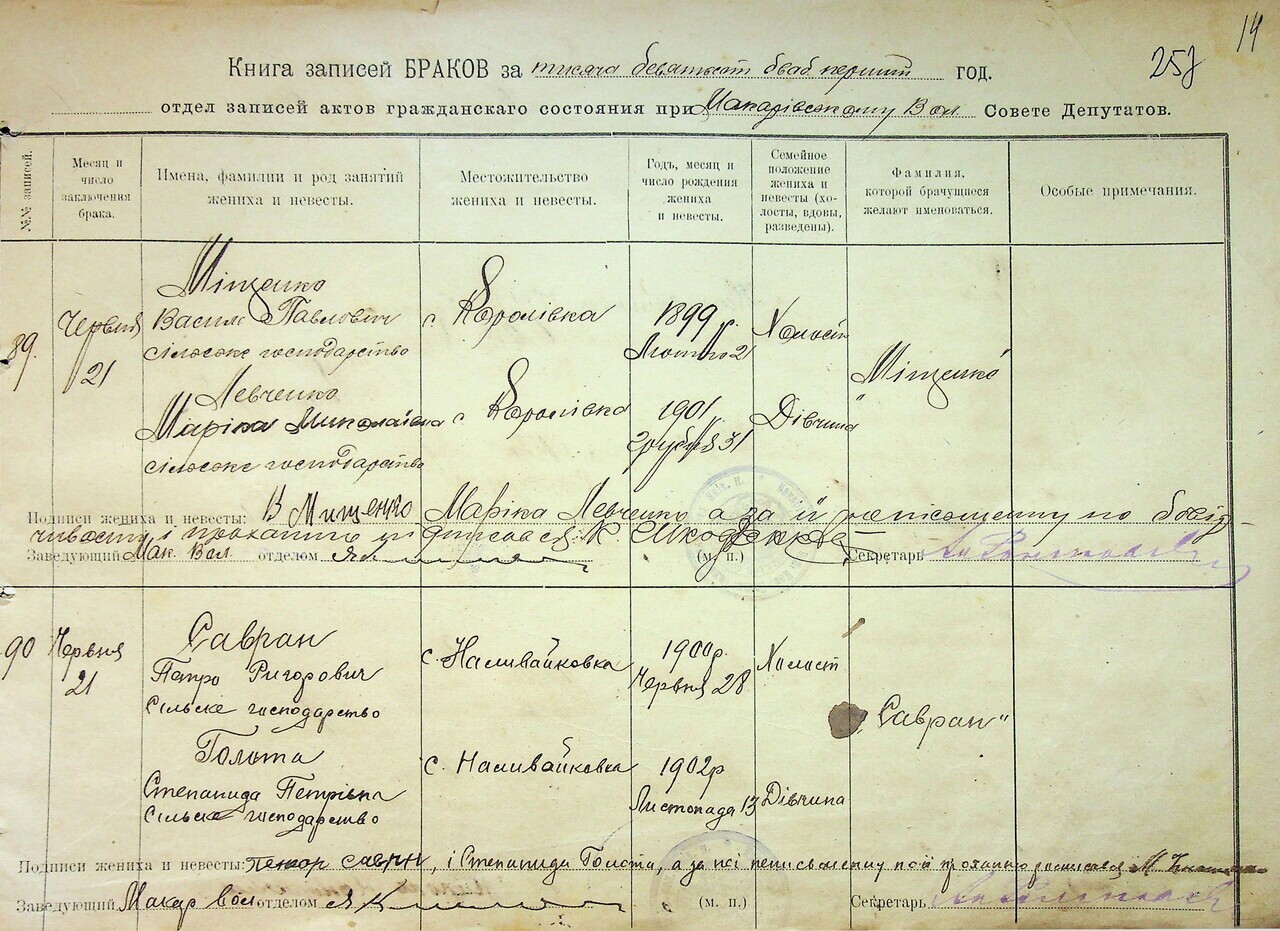 14
257
Книга записей БРАКОВ за тисяча девятьсот двад. перший год.
отдел записей актов гражданскаго состояния при Макарівському Вол. Совете Депутатов.
№№ записей.
Месяц и число заключения брака.
Имена, фамилии и род занятий жениха и невесты.
Местожительство жениха и невесты.
Годъ, месяц и число рождения жениха и невесты.
Семейное положение жениха и невесты (холосты, вдовы, разведены).
Фамилия, которой брачущиеся желают именоваться.
Особые примечания.
89.
Червня 21
Міщенко
Василь Павлович
сільське господарство
с. Королівка
1899 р.
Лютого 21
Холост
„Міщенко“
Левченко
Маріка Миколаївна
сільське господарство
с. Королівка
1901
грудня 31
Дівчина
Подписи жениха и невесты: В Мищенко Маріка Левченко а за її
і
Заведующий Мак. Вол. отделом
(м. п.)
Секретарь
90
Червня 21
Савран
Петро Ригорович
Сільске господарство
с. Наливайковка
1900р.
Червня 28
Холост
„Савран“
Гольта
Степанида Петрівна
Сільске господарство
с. Наливайковка
1902р
Листопада 13
Дівчина
Подписи жениха и невесты: савран, і Степанида Голота, а за
Заведующий Макар вол отделом
(м. п.)
Секретарь